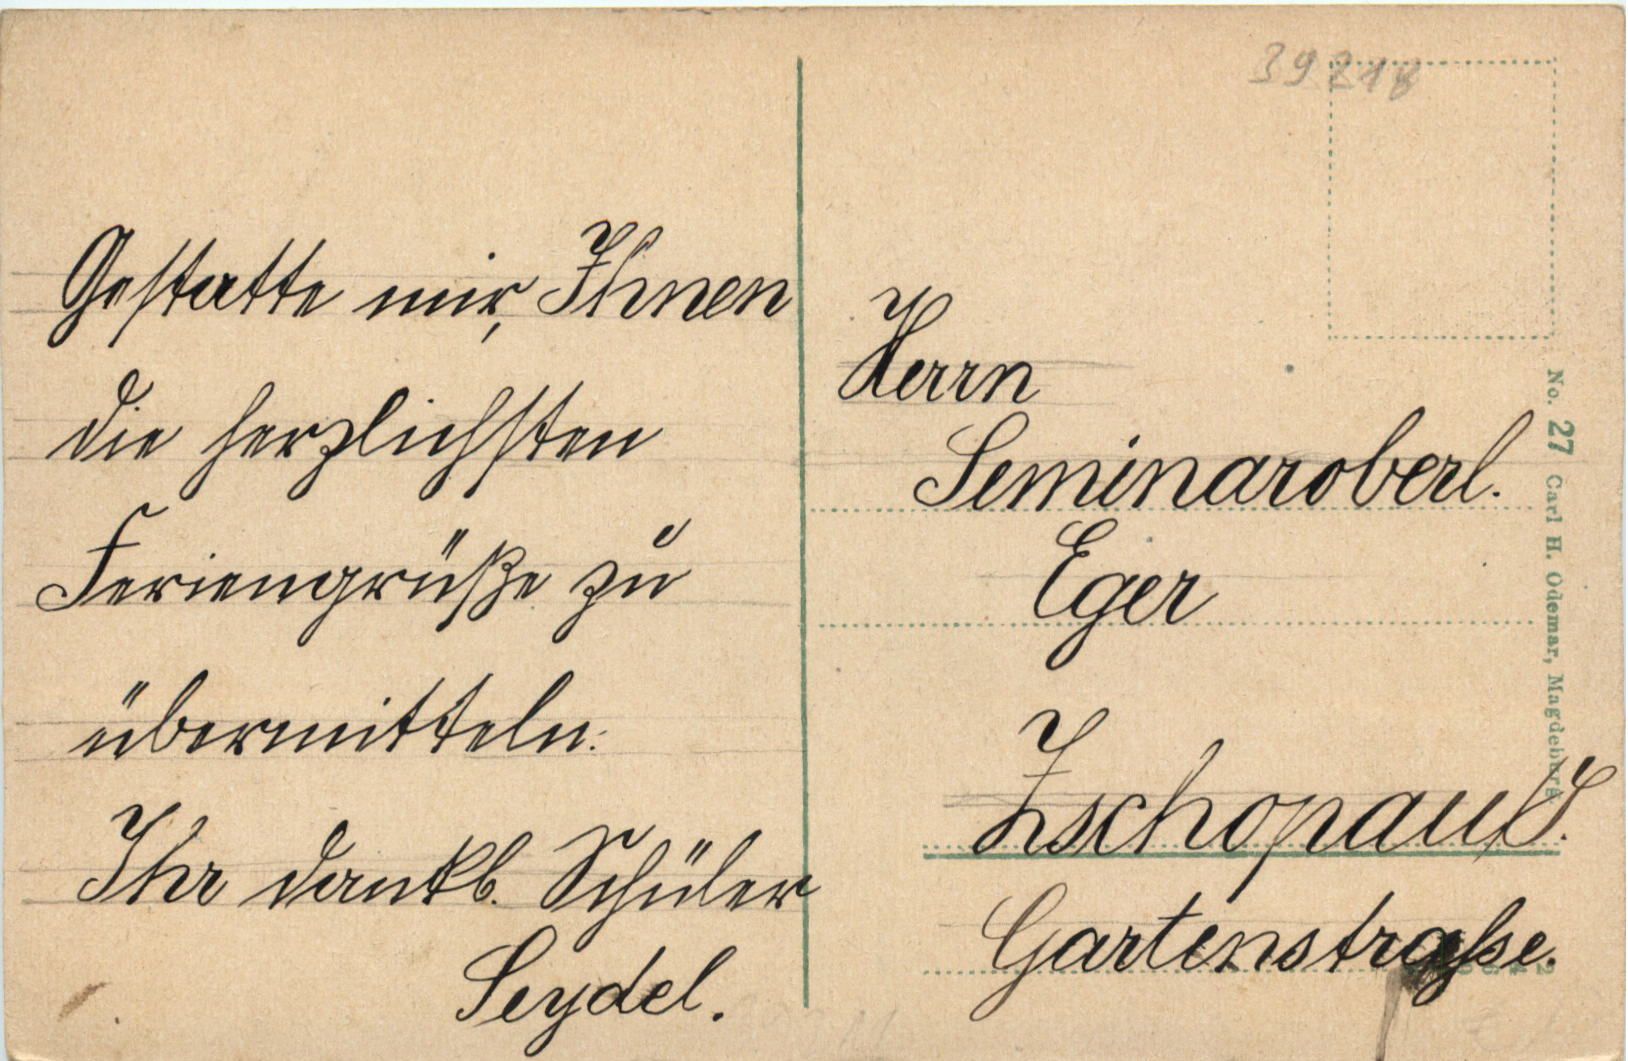 Gestatte mir, Ihnen
die herzlichsten
Feriengrüße zu
übermitteln.
Ihr dankb. Schüler
Seydel.
39218
Herrn
Seminaroberl.
Eger
Zschopau i/S.
Gartenstrasse.
No. 27 Carl H. Odemar, Magdeburg.